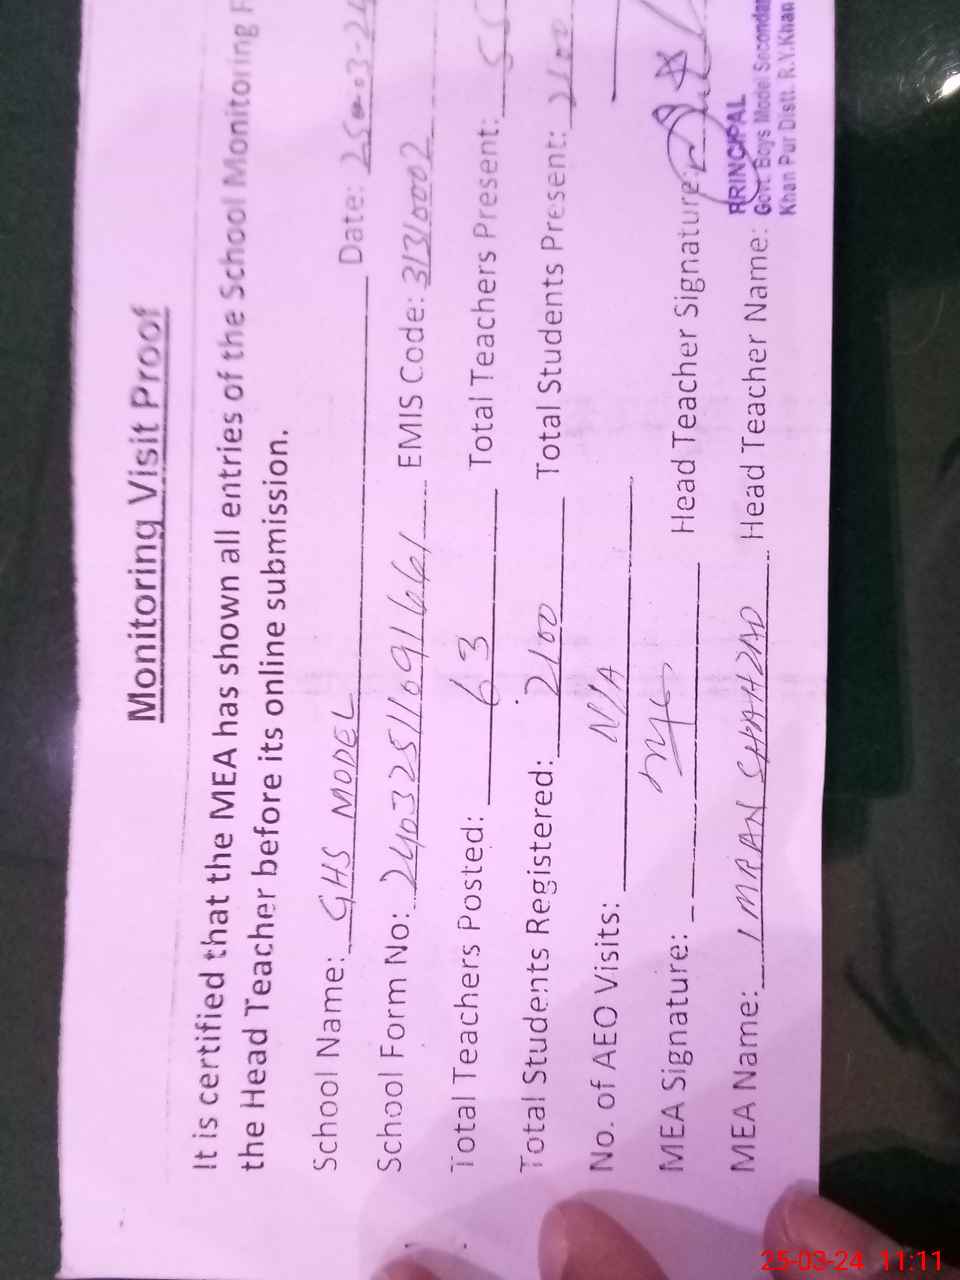 Monitoring Visit Proof
It is certified that the MEA has shown all entries of the School Monitoring F
the Head Teacher before its online submission.
School Name: GHS MODEL Date: 25-03-24
School Form No: 24032511091661 EMIS Code: 31310002
Total Teachers Posted: 63 Total Teachers Present: 55
Total Students Registered: 2100 Total Students Present: 2100
No. of AEO Visits: N/A
MEA Signature: Head Teacher Signature:
MEA Name: IMRAN SHAHZAD Head Teacher Name:
PRINCIPAL
Govt. Boys Model Secondar
Khan Pur Distt. R.Y.Khan
25-03-24 11:11